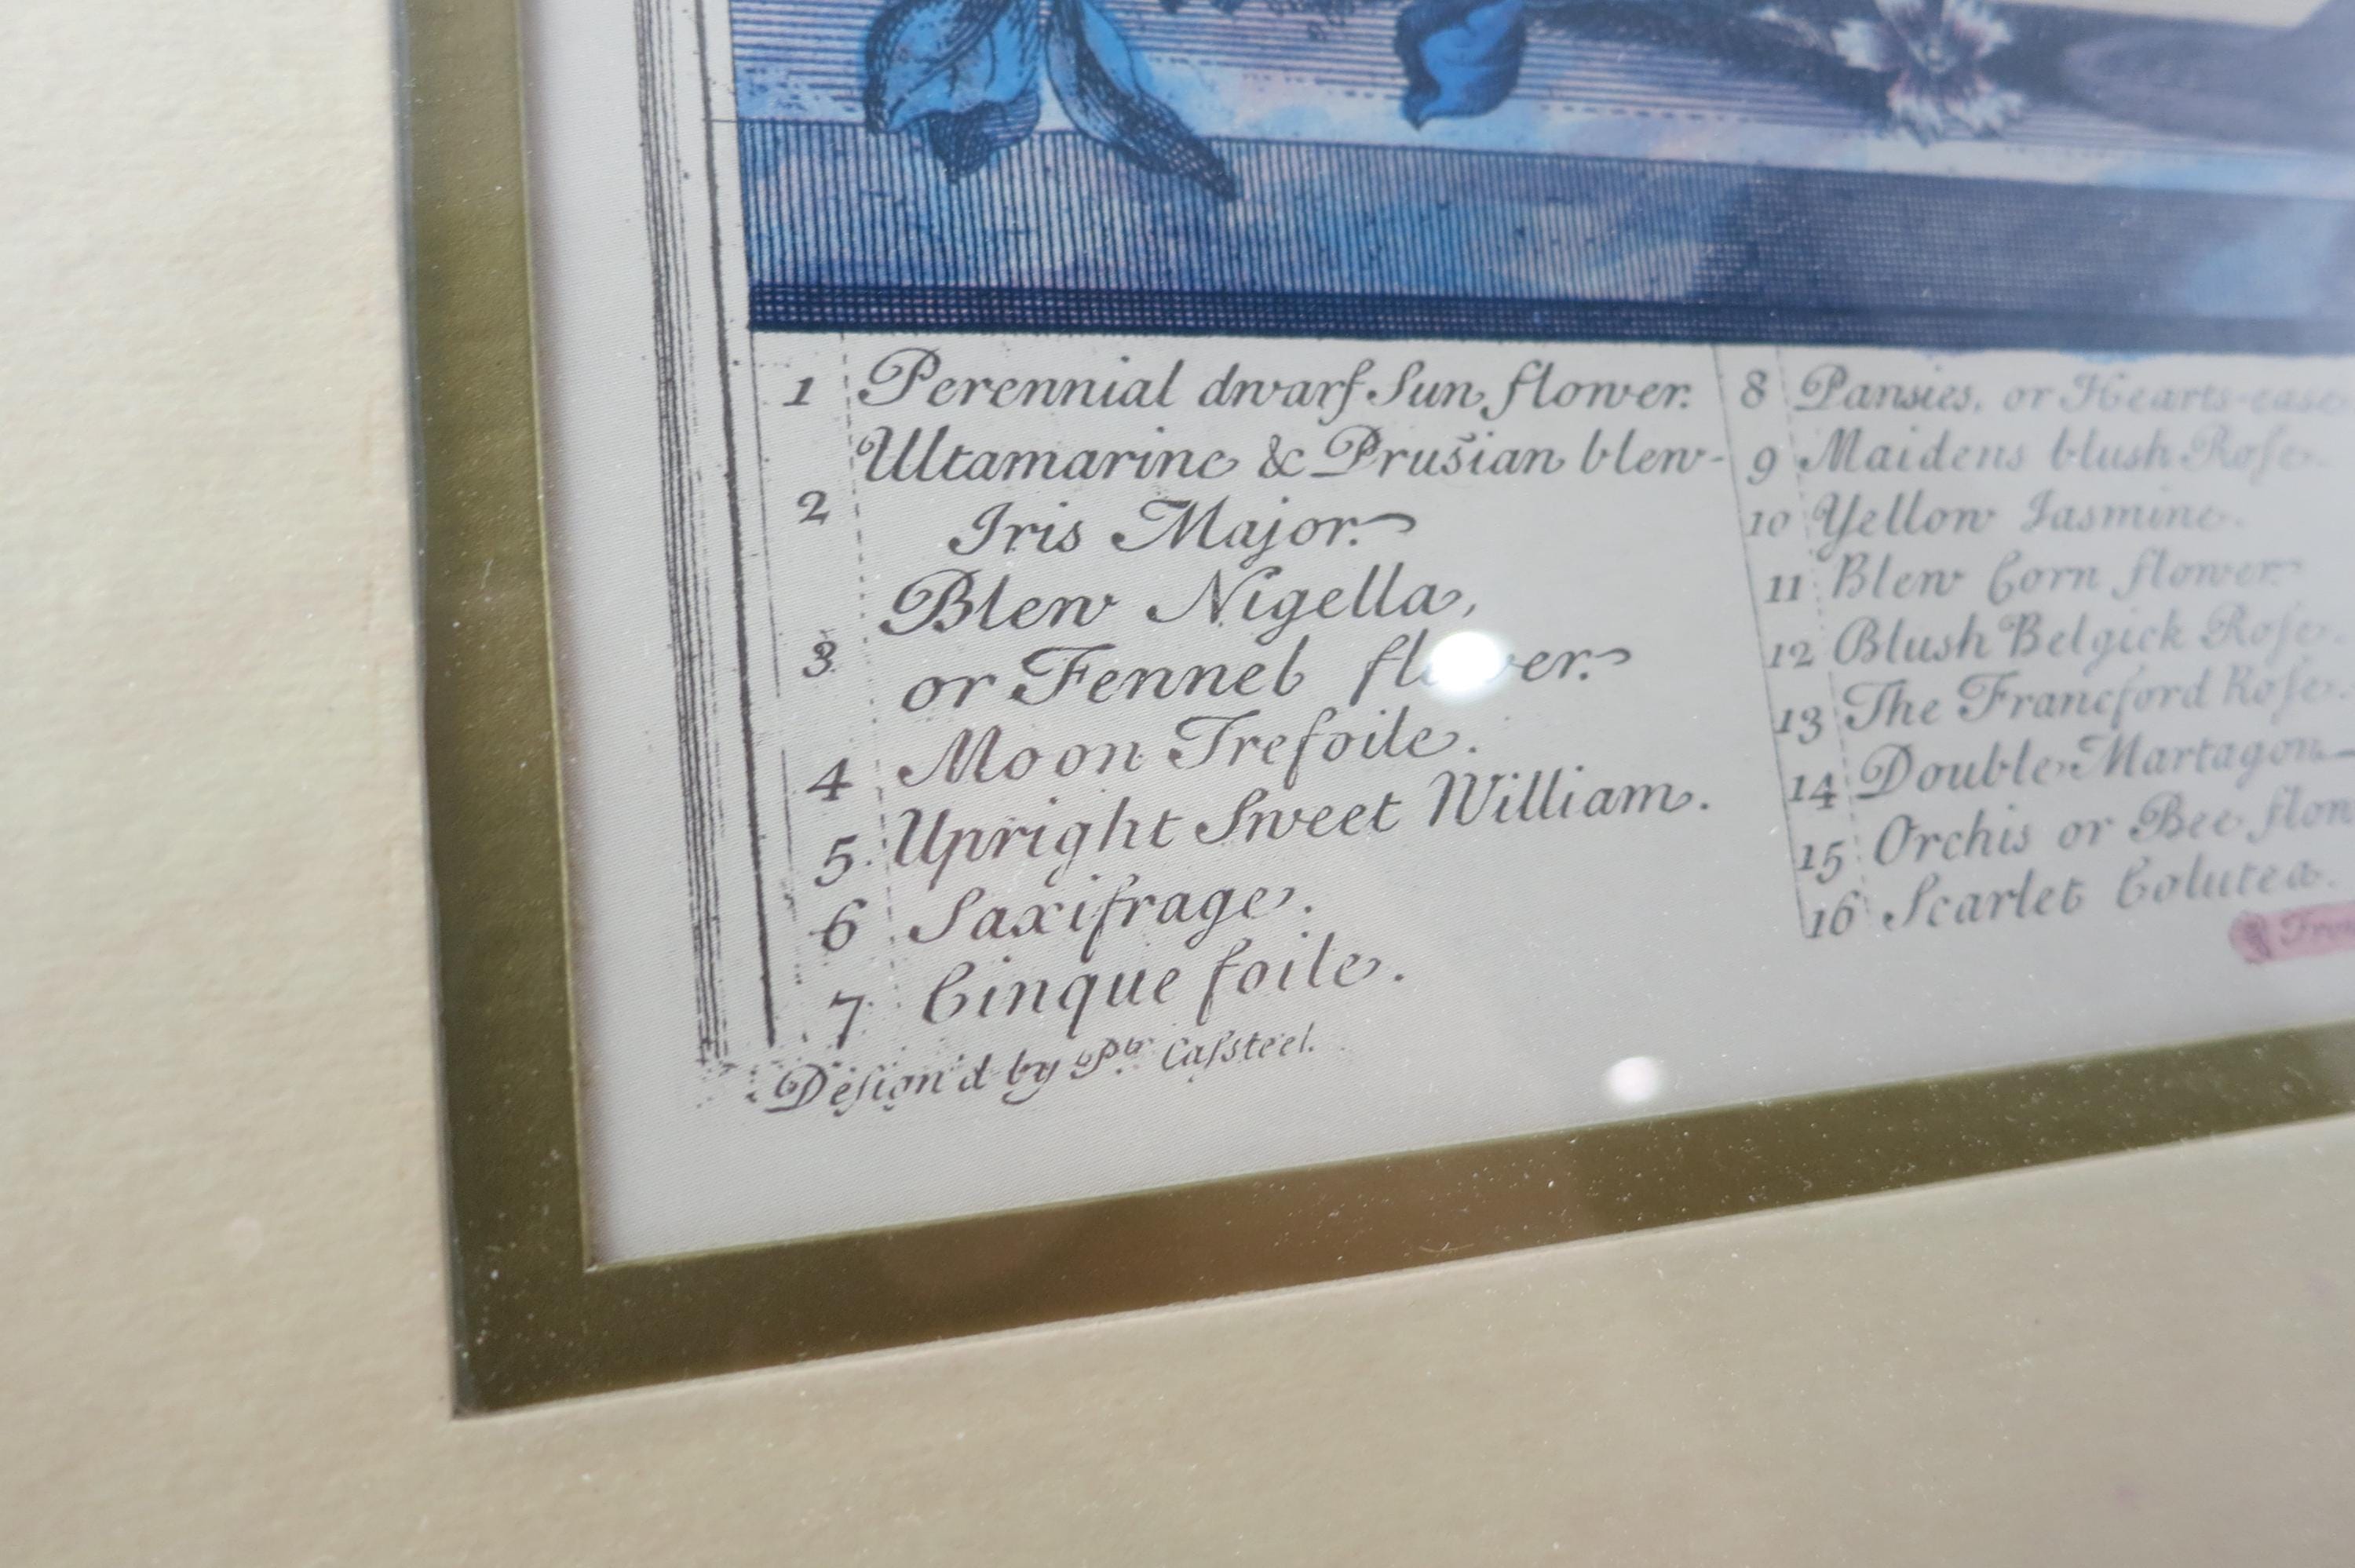 1 Perennial dwarf Sun flower.
Ultamarine & Prusian blew
2 Iris Major.
Blew Nigella,
3 or Fennel flower.
4 Moon Trefoile.
5 Upright Sweet William.
6 Saxifrage.
7 Cinque foile.
Design'd by Pr. Casteel.
8 Pansies, or Hearts-ease
9 Maidens blush Rose.
10 Yellow Jasmine.
11 Blew Corn flower
12 Blush Belgick Rose.
13 The Francford Rose.
14 Double Martagon
15 Orchis or Bee flow
16 Scarlet Colutea.